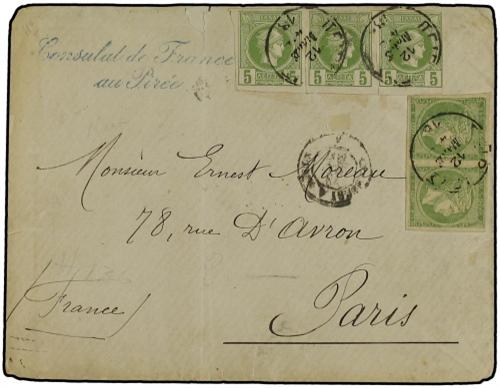 Consulat de France
au Pirée
5 ΛΕΠΤΑ 5
5 ΛΕΠΤΑ 5
5 ΛΕΠΤΑ 5
Monsieur Ernest Moreau
78, rue D'Avron
(France)
Paris